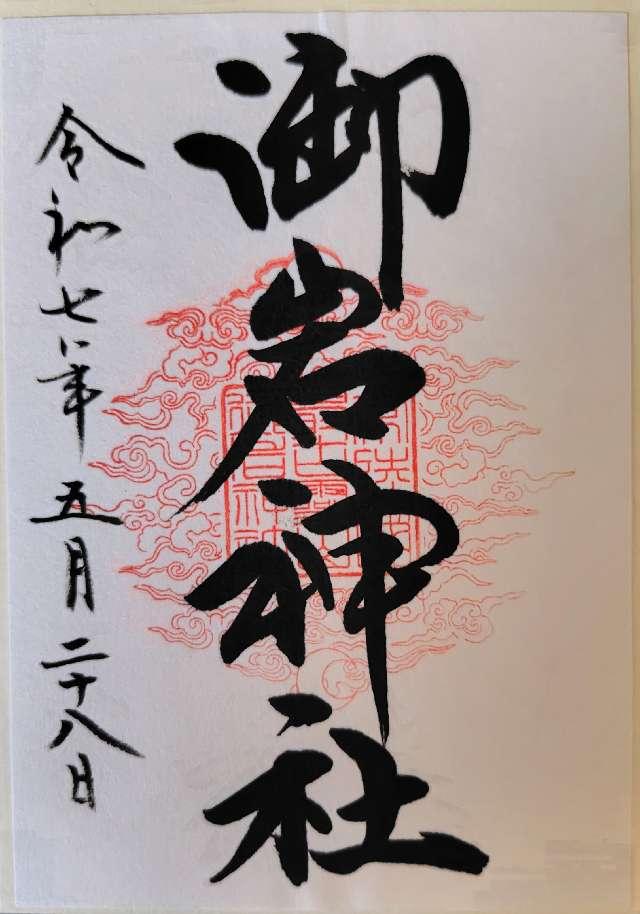 御岩神社
令和七年五月二十八日